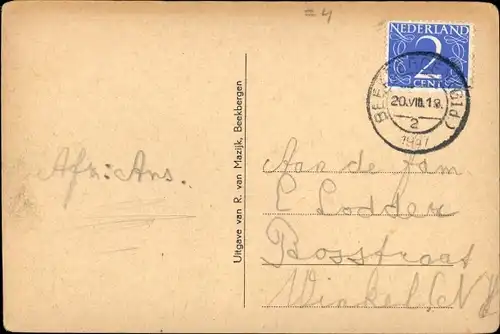 = 4
NEDERLAND
2
CENT
BEEKBERGEN (Gld)
20.VIII.18.
2
1947
Uitgave van R. van Mazijk, Beekbergen
Afz: Ans.
Aan de fam.
C Lodder
Bosstraat
Winkel (N H